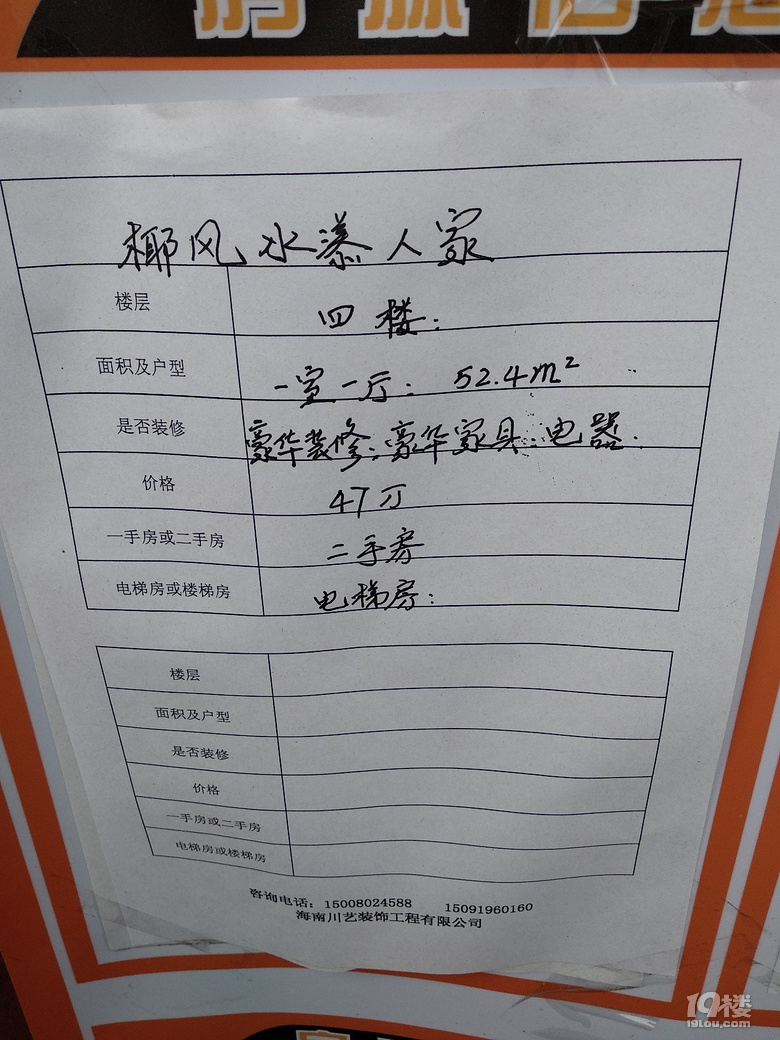 房源信息
椰风水漾人家
楼层 四楼:
面积及户型 一室一厅: 52.4m²
是否装修 豪华装修;豪华家具:电器.
价格 47万
一手房或二手房 二手房
电梯房或楼梯房 电梯房:
楼层
面积及户型
是否装修
价格
一手房或二手房
电梯房或楼梯房
咨询电话：15008024588 15091960160
海南川艺装饰工程有限公司
19楼
19lou.com